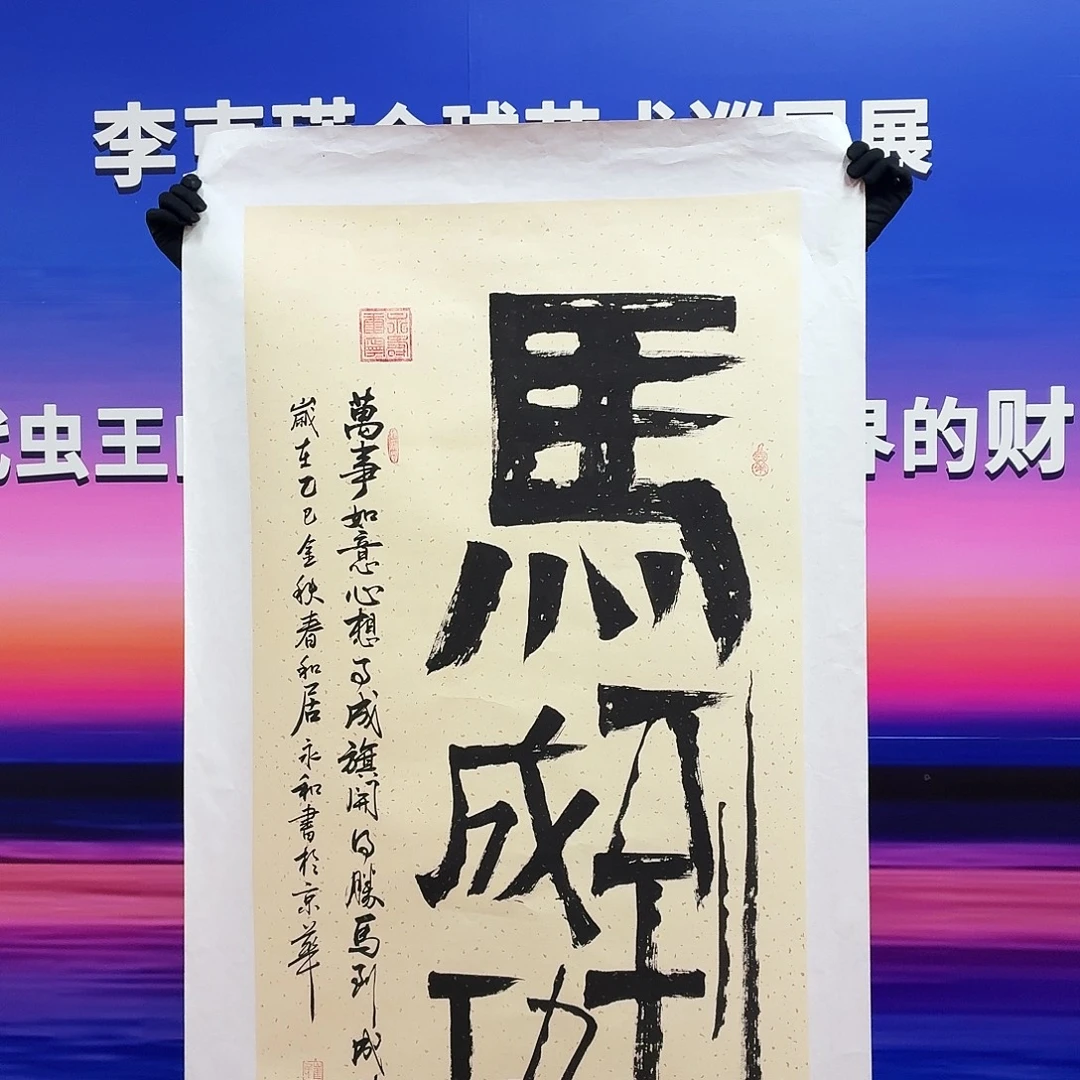 李 全球艺术巡回展
虫王 界的财
馬到成功
萬事如意心想事成旗開得勝馬到成
歲在乙巳金秋春和居永和書於京華